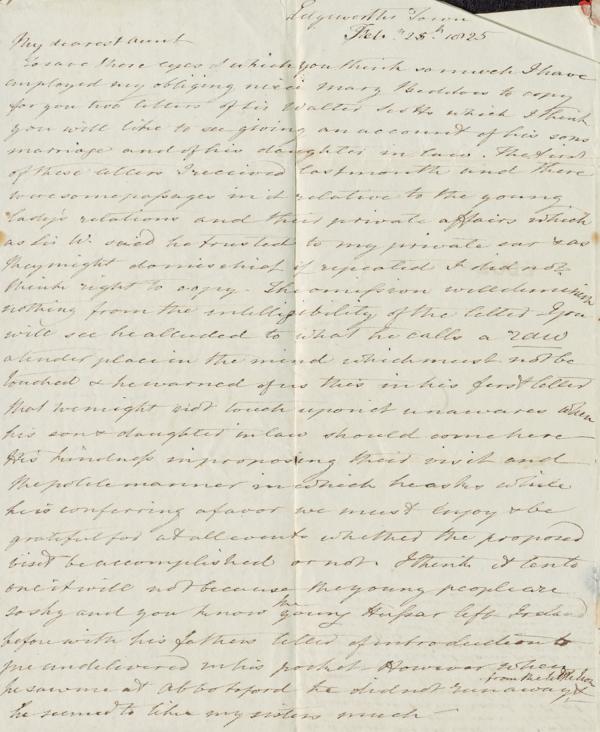 Edgeworths Town
Feb. 25th 1825
My dearest aunt
To save those eyes of which you think so much I have
employed my obliging niece Mary Beddoes to copy
for you two letters of Sir Walter Scotts which I think
you will like to see giving an account of his sons
marriage and of his daughter in law. The first
of these letters I received last month and there
were some passages in it relative to the young
lady's relations and their private affairs which
as Sir W. said he trusted to my private ear & as
they might do mischief if repeated I did not
think right to copy. The omission will diminish
nothing from the intelligibility of the letter. You
will see he alluded to what he calls a raw
a tender place in the mind which must not be
touched & he warned of us this in his first letter
that we might not touch upon it unawares when
his son & daughter in law should come here
His kindness in proposing their visit and
the polite manner in which he asks while
he is conferring a favor we must enjoy & be
grateful for at all events whether the proposed
visit be accomplished or not. I think it ten to
one it will not because the young people are
so shy and you know the young Hussar left Ireland
before with his fathers letter of introduction to
me undelivered in his pocket. However when
he saw me at Abbotsford he did not run away &
he seemed to like my sisters much